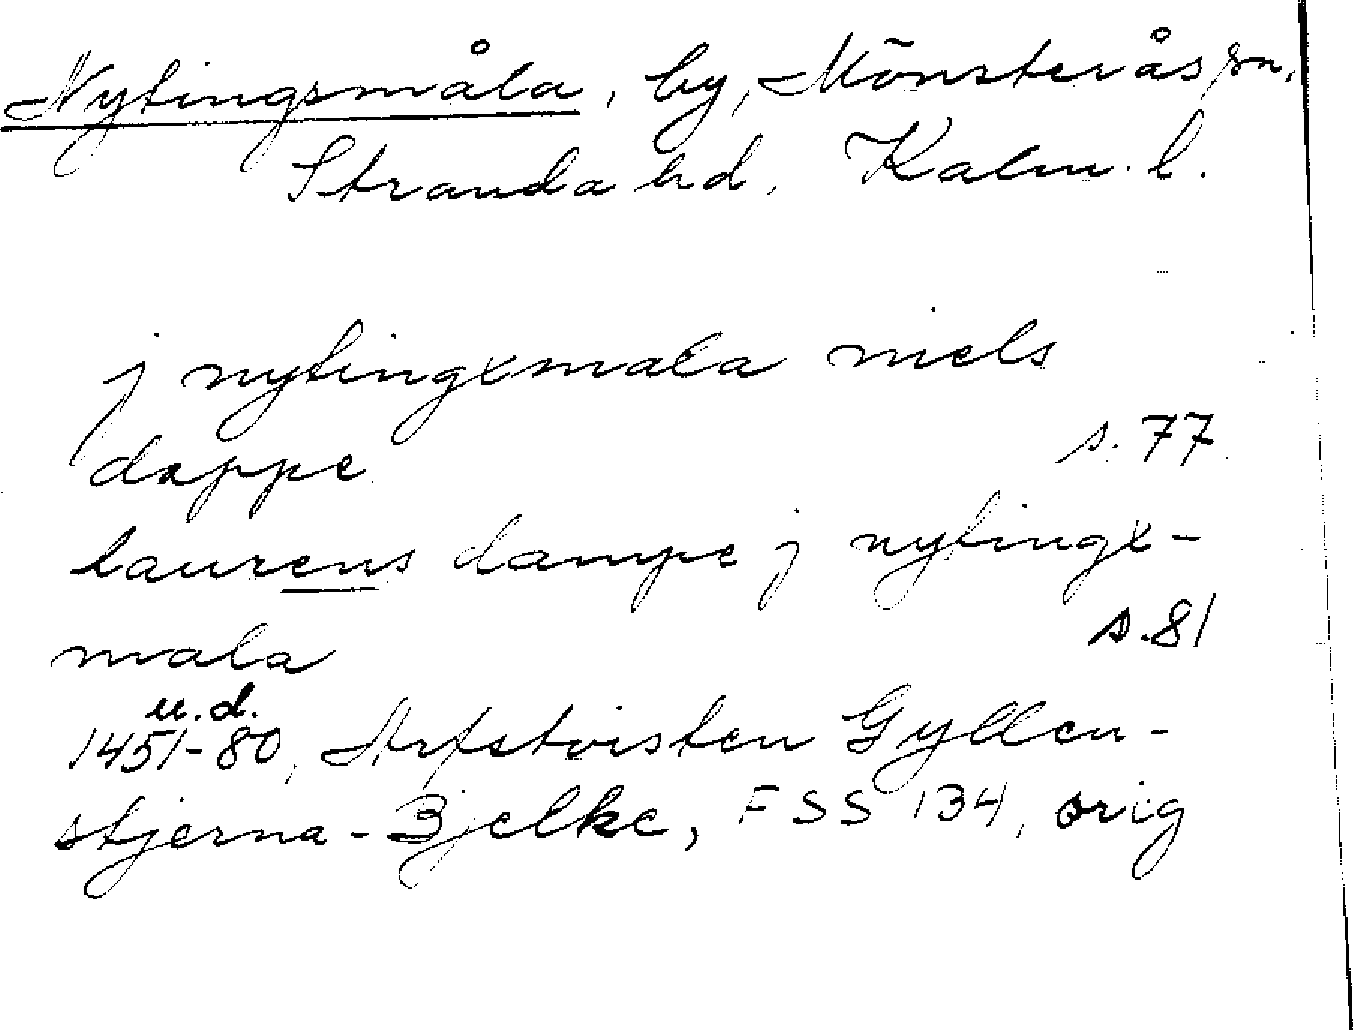 Nytingsmåla, by, Mönsterås sn,
Stranda hd, Kalm. l.
j nytingxmala niels
dappe s. 77
laurens dampe j nytingx-
mala s. 81
u.d.
1451-80, Arfstvisten Gyllen-
stjerna-Bjelke, FSS 134, orig